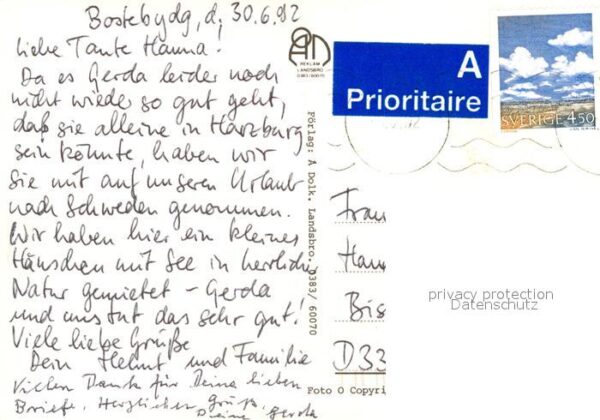 Bostebydg, d, 30.6.92
Liebe Tante Hanna.
Da es Gerda leider noch
nicht wieder so gut geht,
daß sie alleine in Harzburg
sein könnte, haben wir
sie mit auf unseren Urlaub
nach Schweden genommen.
Wir haben hier ein kleines
Häuschen mit See in herrlicher
Natur gemietet - Gerda
und uns tut das sehr gut!
Viele liebe Grüße
Dein Helmut und Familie
Vielen Dank für Deine lieben
Briefe. Herzlichen Gruß,
Deine Gerda
REKLAM
LANDSBRO
0383/60070
Förlag: A Dolk. Landsbro. 0383/ 60070
Foto O Copyri
A
Prioritaire
SVERIGE 4,50
Frau
Han
Bis
D33
privacy protection
Datenschutz